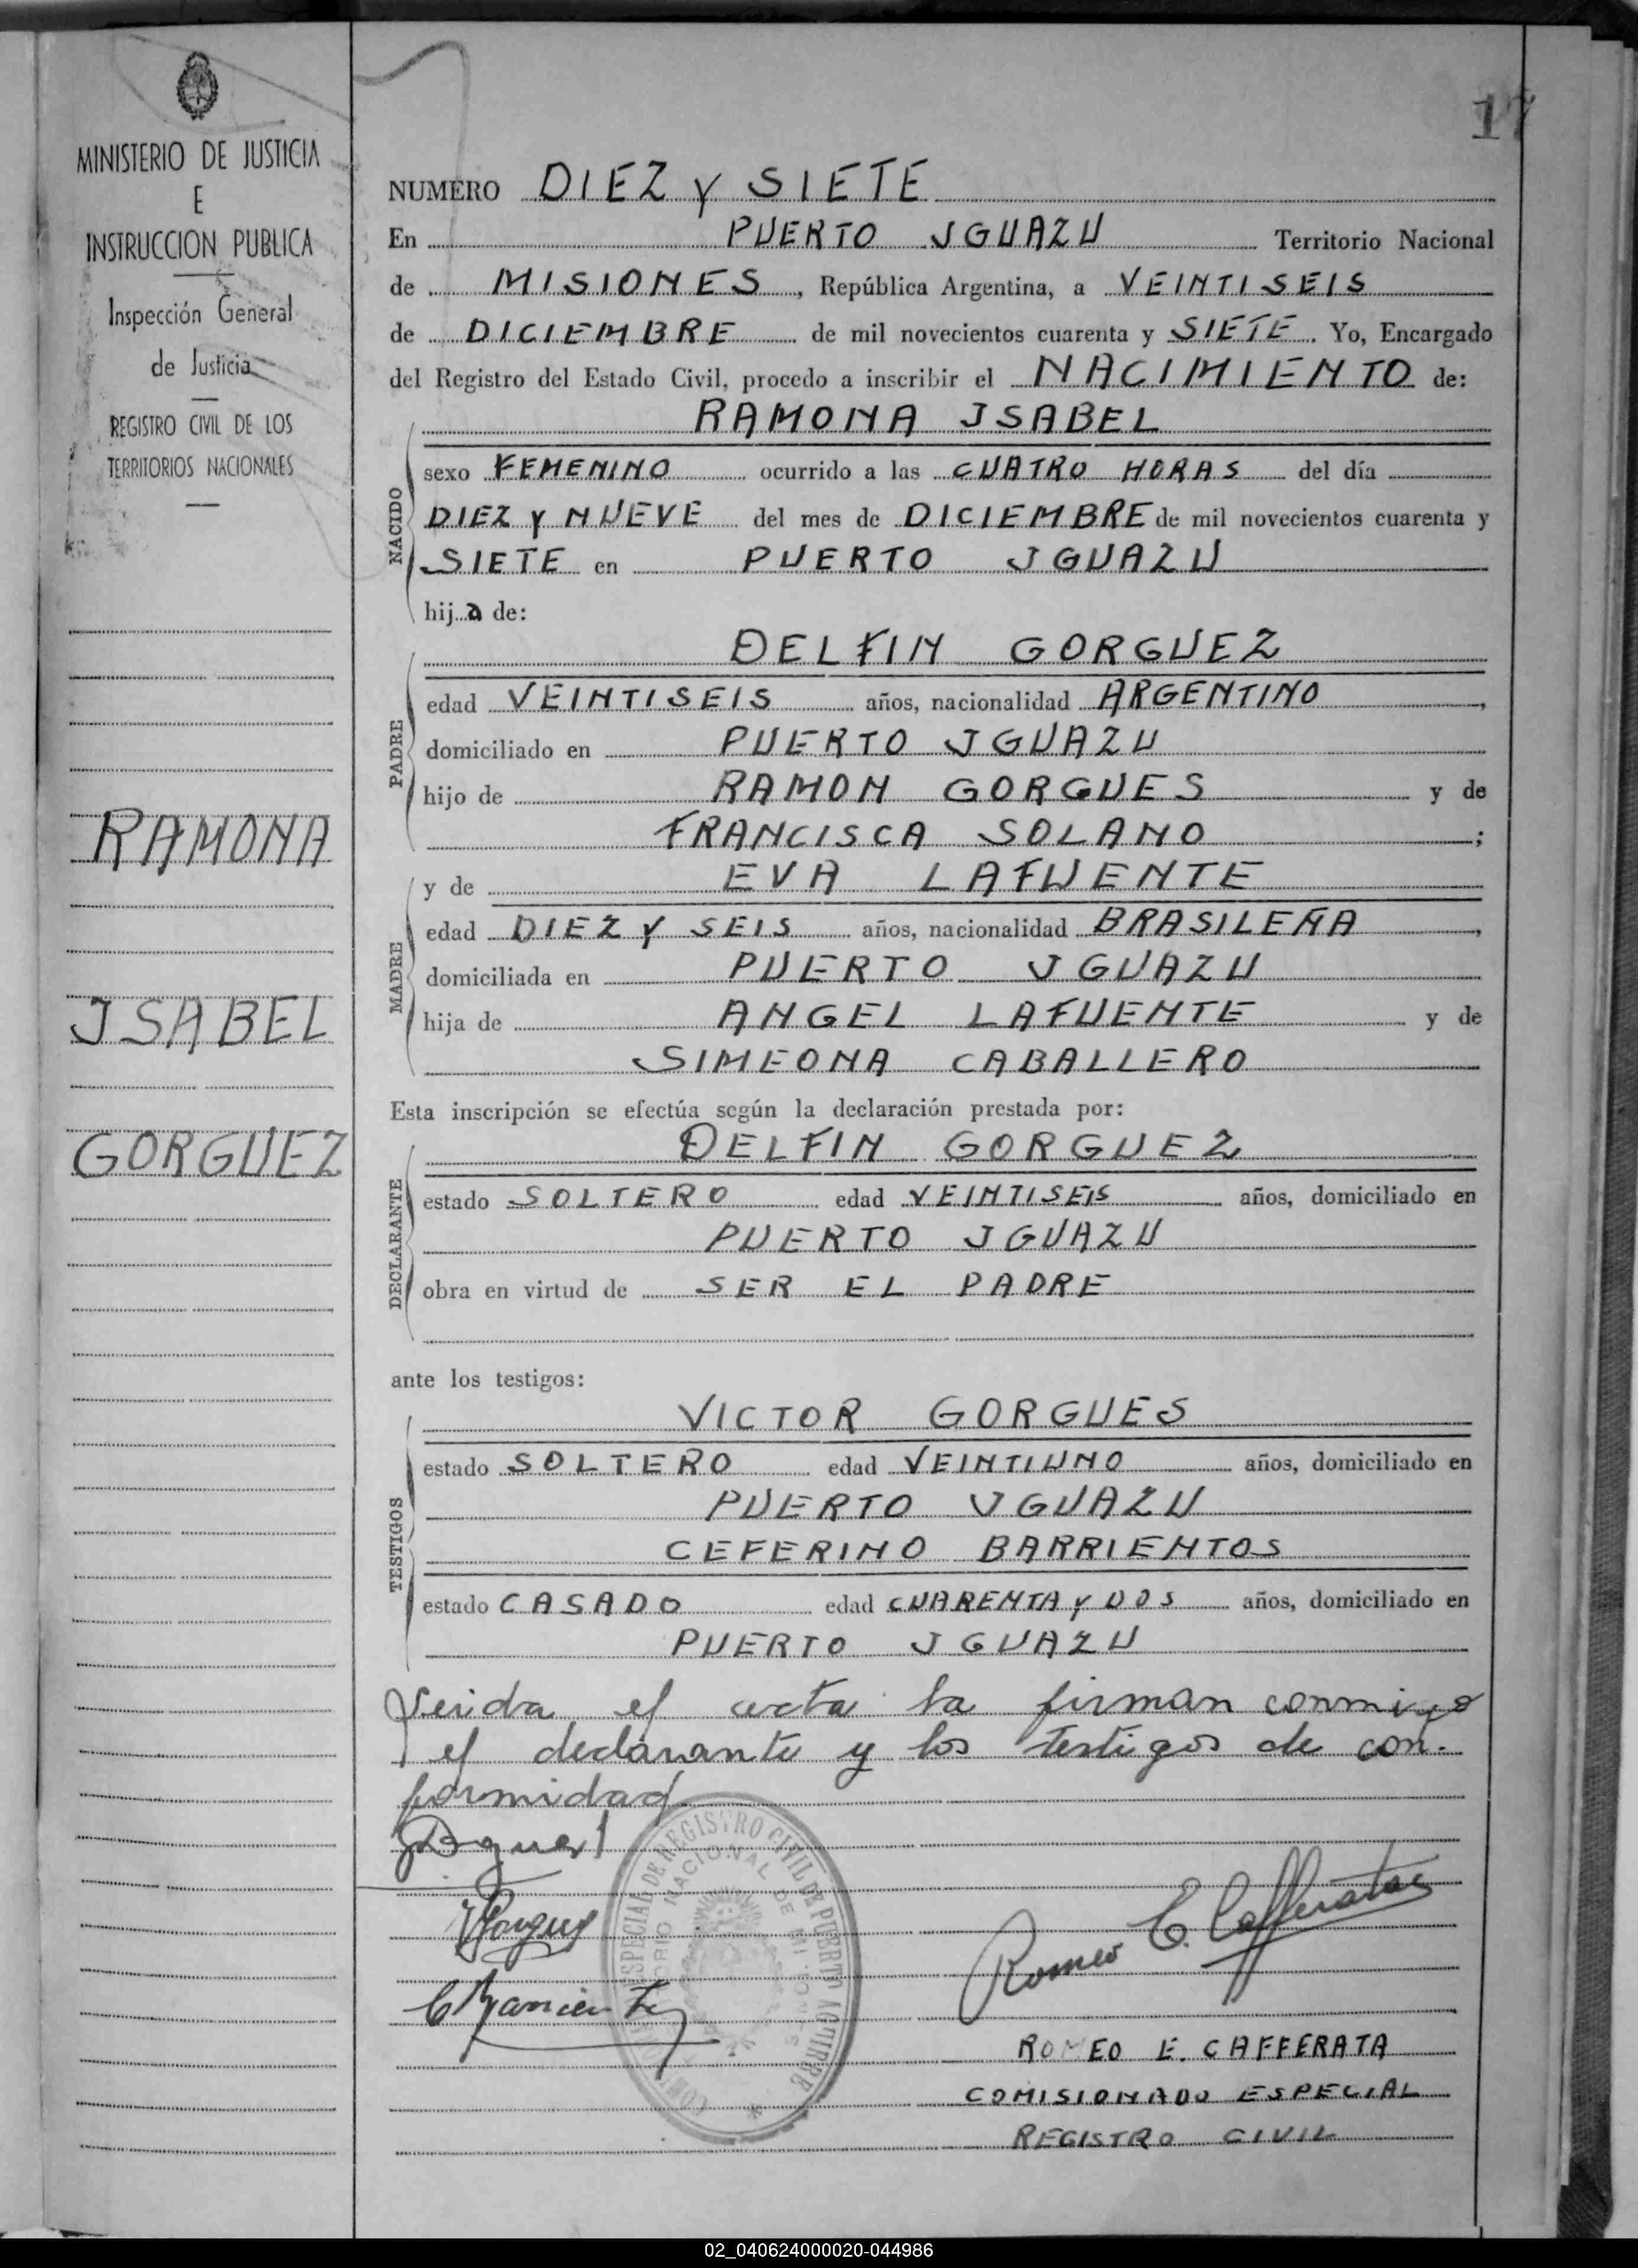 MINISTERIO DE JUSTICIA
E
INSTRUCCION PUBLICA
Inspección General
de Justicia
REGISTRO CIVIL DE LOS
TERRITORIOS NACIONALES
RAMONA
JSABEL
GORGUEZ
17
NUMERO DIEZ y SIETE
En PUERTO JGUAZU Territorio Nacional
de MISIONES, República Argentina, a VEINTISEIS
de DICIEMBRE de mil novecientos cuarenta y SIETE. Yo, Encargado
del Registro del Estado Civil, procedo a inscribir el NACIMIENTO de:
NACIDO
RAMONA JSABEL
sexo FEMENINO ocurrido a las CUATRO HORAS del día
DIEZ y NUEVE del mes de DICIEMBRE de mil novecientos cuarenta y
SIETE en PUERTO JGUAZU
hija de:
PADRE
DELFIN GORGUEZ
edad VEINTISEIS años, nacionalidad ARGENTINO,
domiciliado en PUERTO JGUAZU
hijo de RAMON GORGUES y de
FRANCISCA SOLANO;
MADRE
y de EVA LAFUENTE
edad DIEZ y SEIS años, nacionalidad BRASILEÑA,
domiciliada en PUERTO JGUAZU
hija de ANGEL LAFUENTE y de
SIMEONA CABALLERO
Esta inscripción se efectúa según la declaración prestada por:
DECLARANTE
DELFIN GORGUEZ
estado SOLTERO edad VEINTISEIS años, domiciliado en
PUERTO JGUAZU
obra en virtud de SER EL PADRE
ante los testigos:
TESTIGOS
VICTOR GORGUES
estado SOLTERO edad VEINTIUNO años, domiciliado en
PUERTO JGUAZU
CEFERINO BARRIENTOS
estado CASADO edad CUARENTA y DOS años, domiciliado en
PUERTO JGUAZU
Leida el acta la firman conmigo
el declarante y los testigos de con-
formidad
Romeo E. Cafferata
ROMEO E. CAFFERATA
COMISIONADO ESPECIAL
REGISTRO CIVIL
ESPECIAL DE REGISTRO CIVIL DE PUERTO AGUIRRE
NACIONAL DE MISIONES
02_040624000020-044986